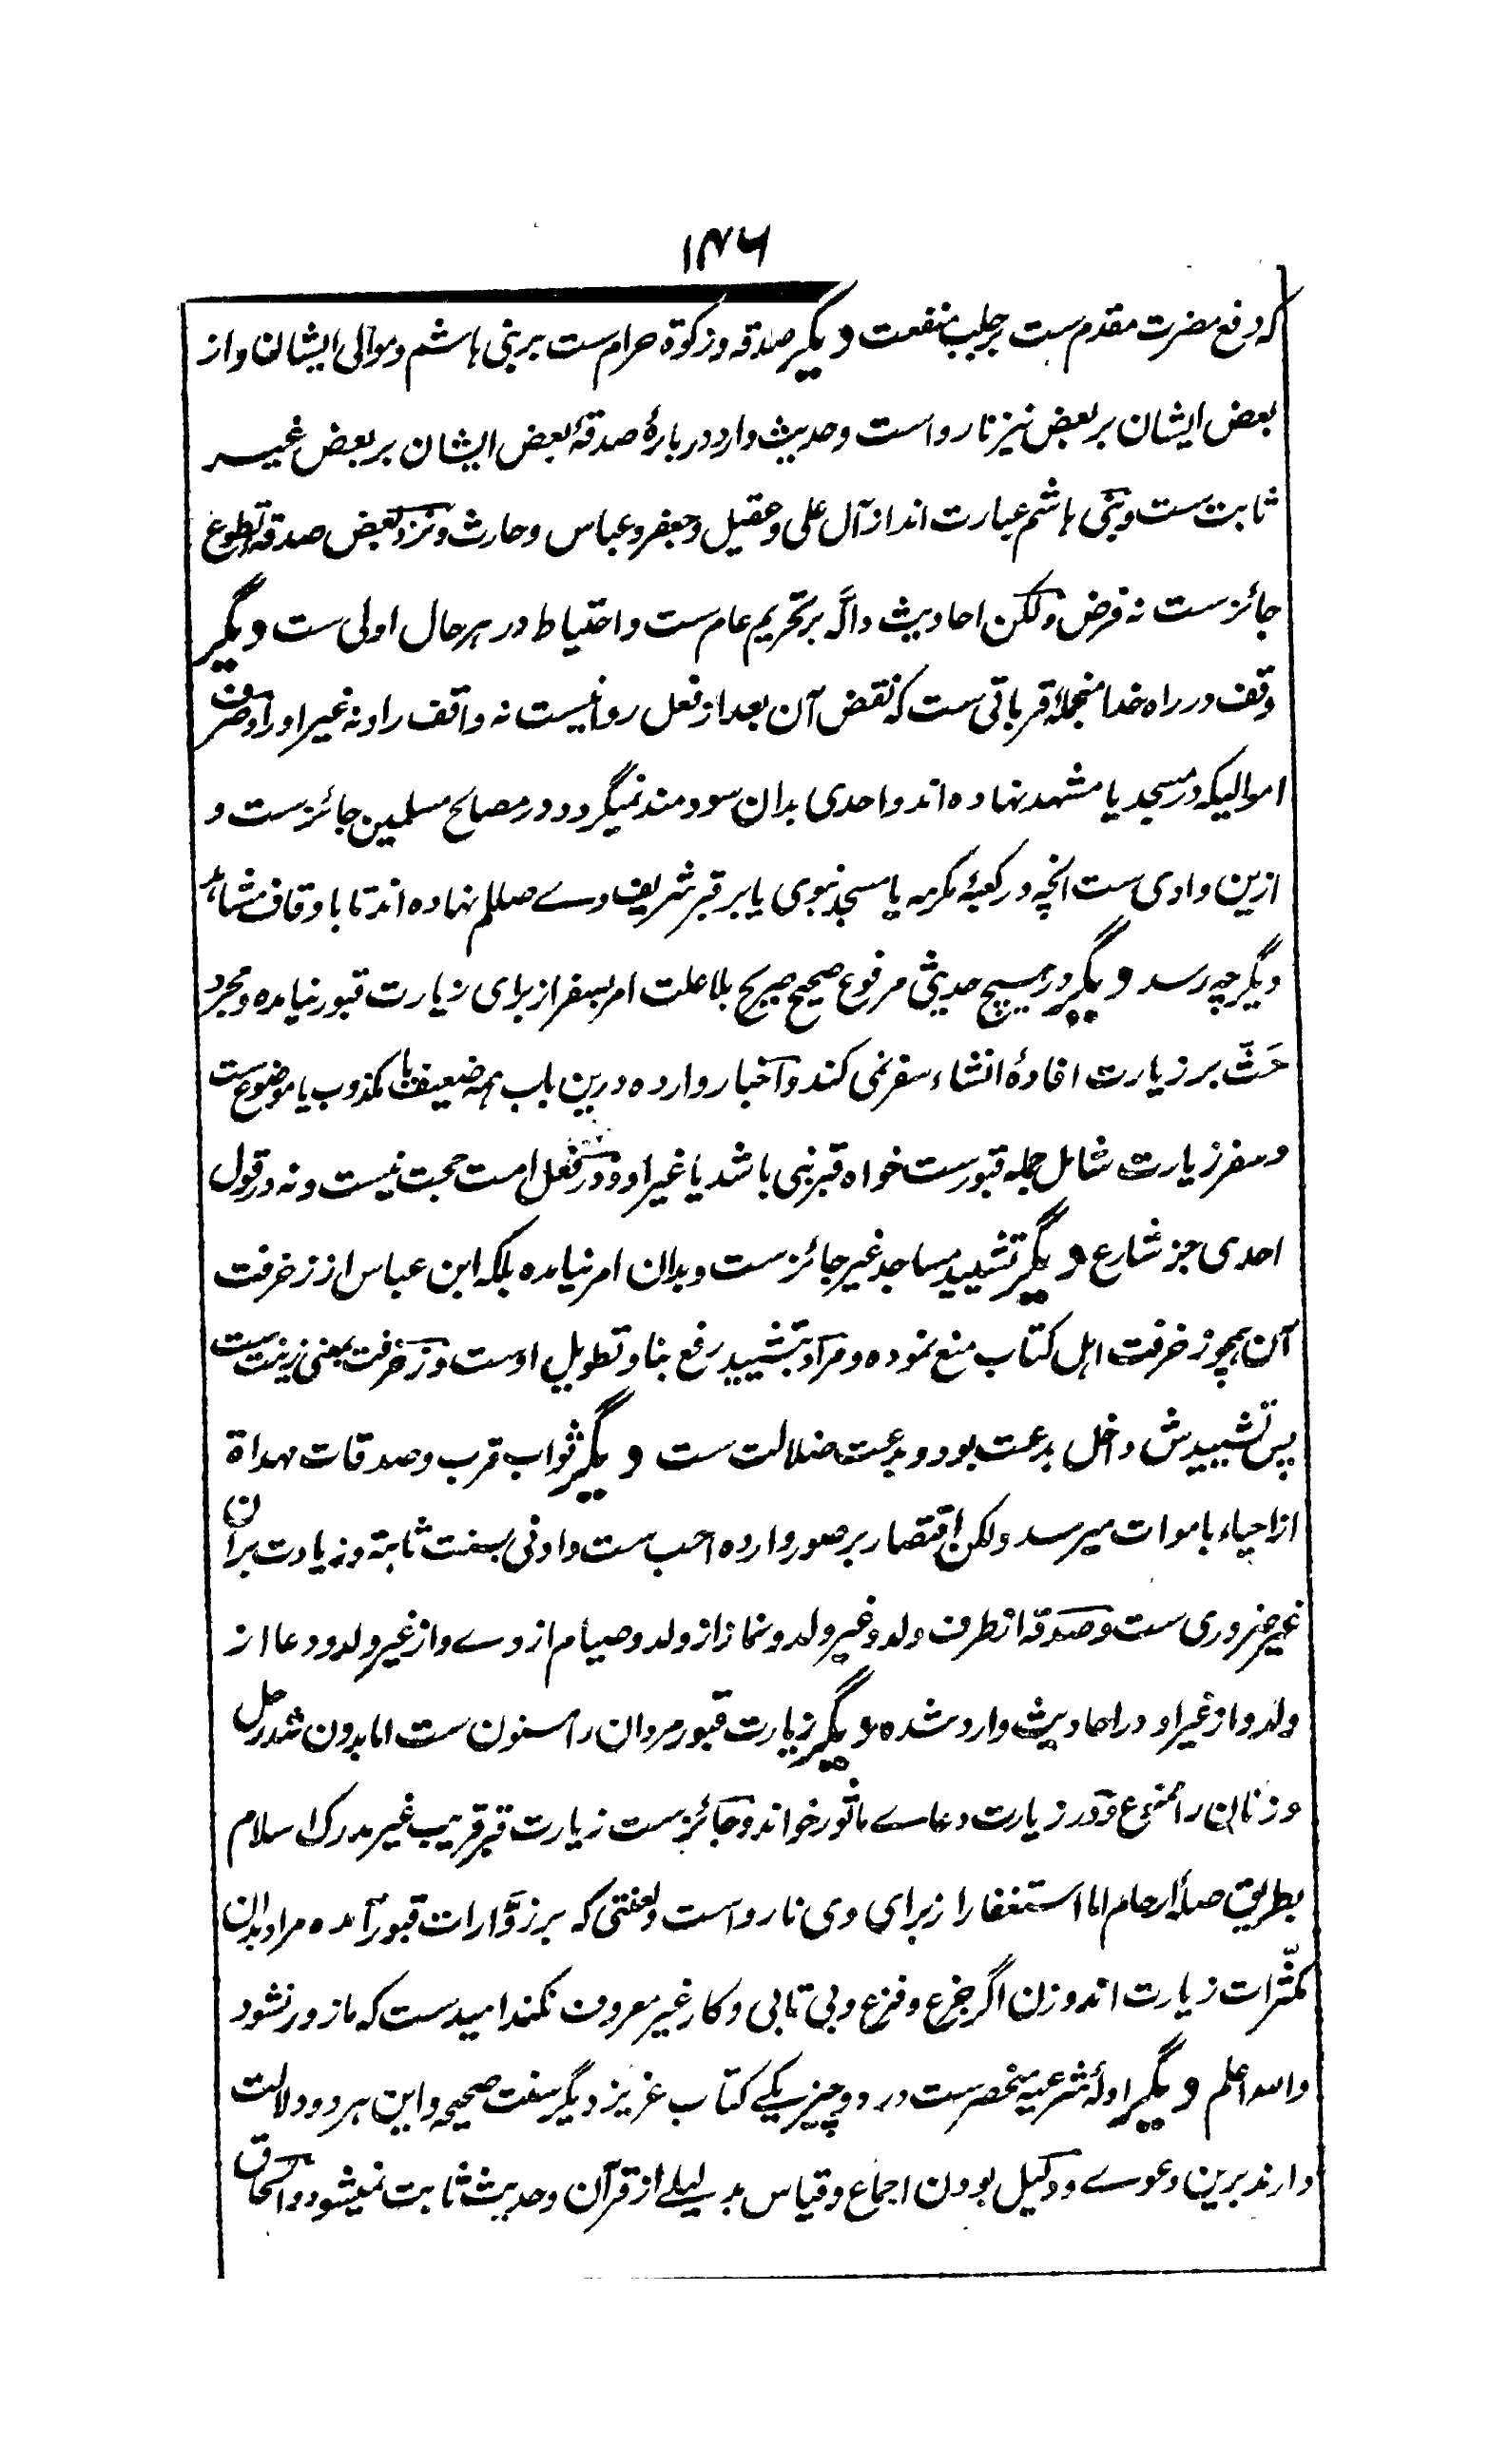 ۱۴۶
که دفع مضرت مقدم ست بر جلب منفعت دیگر صدقه و زکوة حرام ست بر بنی هاشم و موالی ایشان و از
بعض ایشان بر بعض نیز نارواست و حدیث وارد دربارۀ صدقۀ بعض ایشان بر بعض غیر
ثابت ست و بنی هاشم عبارت اند از آل علی و عقیل و جعفر و عباس و حارث و نزد بعض صدقه تطوع
جائز ست نه فرض ولکن احادیث دالّه بر تحریم عام ست و احتیاط در هر حال اولی ست دیگر
وقف در راه خدا منجملۀ قرباتی ست که نقض آن بعد از فعل روا نیست نه واقف را و نه غیر او را و صرف
اموالیکه در مسجد یا مشهد نهاده اند و احدی بدان سودمند نمیگردد در مصالح مسلمین جائز ست و
ازین وادی ست انچه در کعبۀ مکرمه یا مسجد نبوی یا بر قبر شریف وے صللم نهاده اند تا باوقاف مشاهد
دیگر چه رسد دیگر در هیچ حدیثی مرفوع صحیح صریح بلا علت امر بسفر از برای زیارت قبور نیامده و مجرد
حَثّ بر زیارت افادۀ انشاء سفر نمی کند و اخبار وارده درین باب همه ضعیف یا مکذوب یا موضوع ست
و سفر زیارت شامل جمله قبور ست خواه قبر نبی باشد یا غیر او و در فعل امت حجت نیست و نه در قول
احدی جز شارع دیگر تشیید مساجد غیر جائز ست و بدان امر نیامده بلکه ابن عباس از زخرفت
آن همچو زخرفت اهل کتاب منع نموده و مراد بتشیید رفع بنا و تطویل اوست و زخرفت بمعنی زینت ست
پس تشییدش داخل بدعت بود و بدعت ضلالت ست دیگر ثواب قرب و صدقات مهداة
از احیاء باموات میرسد ولکن اقتصار بر صور وارده احب ست و اوفی بسنت ثابته و زیادت بران
غیر ضروری ست و صدقه از طرف ولد و غیر ولد و نماز از ولد و صیام از وے و از غیر ولد و دعا از
ولد و از غیر او در احادیث وارد شده دیگر زیارت قبور مردان را مسنون ست اما بدون شد رحل
و زنان را ممنوع و در زیارت دعاے ماثور خواند و جائز ست زیارت قبر قریب غیر مدرک اسلام
بطریق صلۀ ارحام اما استغفار از برای وی نارواست و لعنتی که بر زوّارات قبور آمده مراد بدان
مکثّرات زیارت اند و زن اگر جزع و فزع و بی تابی و کار غیر معروف نکند امید ست که مازور نشود
والله اعلم دیگر ادلۀ شرعیه منحصر ست در دو چیز یکے کتاب عزیز دیگر سنت صحیحه و این هر دو دلالت
دارند برین دعوے و دلیل بودن اجماع و قیاس بدلیلے از قرآن و حدیث ثابت نمیشود و الحاق